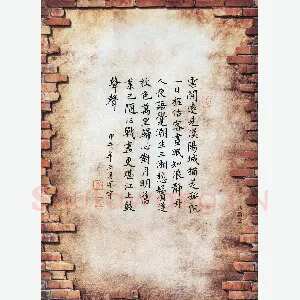 雲開遠見漢陽城猶是孤帆
一日程估客晝眠知浪靜舟
人夜語覺潮生三湘愁鬢逢
秋色萬里歸心對月明舊
業已隨征戰盡更堪江上鼓
鼙聲